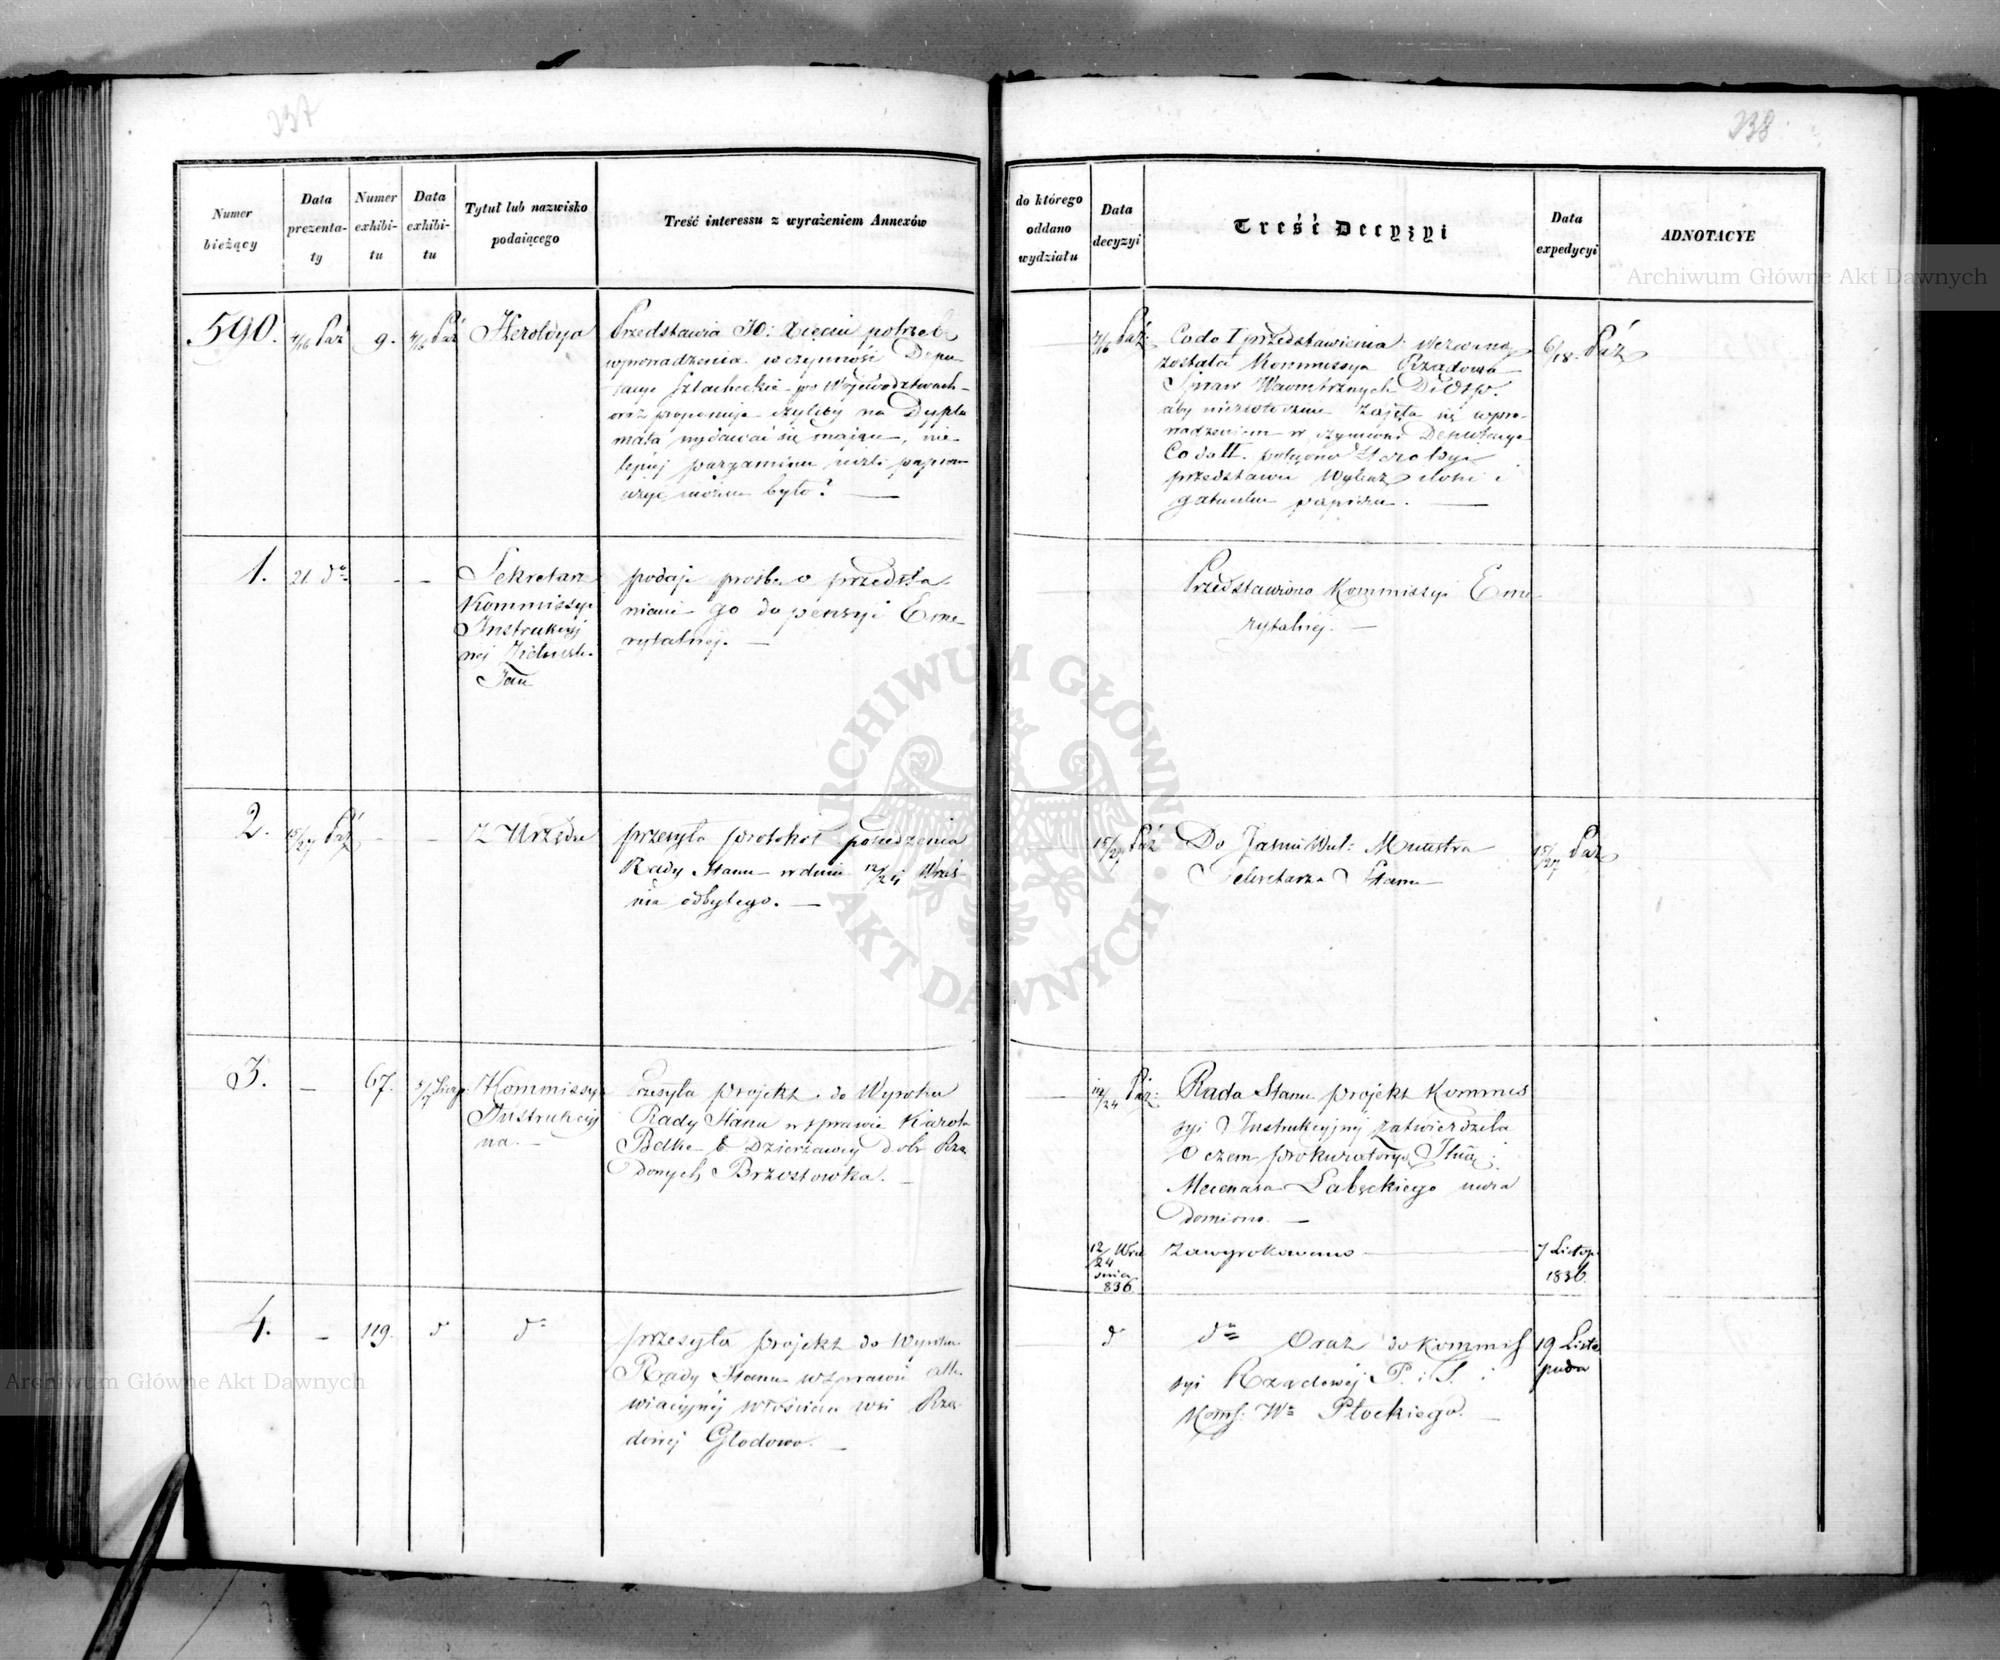 237
Numer
bieżący
Data
prezenta-
ty
Numer
exhibi-
tu
Data
exhibi-
tu
Tytuł lub nazwisko
podaiącego
Treść interessu z wyrażeniem Annexów
590.
4/16 Paź
9.
4/16 Paź
Heroldya
Przedstawia potrzebę
wprowadzenia w czynność Depu
tacye Szlacheckie po Województwach
oraz proponuje czyliby na Dyplo
mata wydawać się maiące, nie
lepiej pargaminu niżli papieru
użyć można było? —
1.
21 do
-
-
Sekretarz
Kommissyi
Instrukcyj
nej
Jan
podaje prośbę o przedsta
wienie go do pensyi Eme-
rytalnej. —
2.
15/27 Paź
-
-
Z Urzędu
przesyła protokół posiedzenia
Rady Stanu w dniu 12/24 Wrześ
nia odbytego. —
3.
—
67.
5/17 Sierp.
Kommissya
Instrukcyj
na. —
Przesyła projekt do Wyroku
Rady Stanu w sprawie Karola
Belke b Dzierżawcy dobr Rzą
dowych Brzostowka. —
4.
—
119.
d
do
przesyła projekt do Wyroku
Rady Stanu w sprawie alle
wiacyjnéj włościan wsi Rzą-
dowej Głodowo. —
238
do którego
oddano
wydziału
Data
decyzyi
Treść Decyzyi
Data
expedycyi
ADNOTACYE
4/16 Paź:
Co do I przedstawienia wezwaną
została Kommissya Rządowa
Spraw Wewnętrznych D. i O. P.
aby niezwłocznie zajęła się wpro-
wadzeniem w czynność Deputacye
Co do II. polecono Heroldyi
przedstawić Wykaz ilości i
gatunku papieru. —
6/18 Paź
Przedstawiono Kommissyi Eme-
rytalnéj. —
15/27 Paź
Do Jaśnie Wiel: Ministra
Sekretarza Stanu
15/27 Paź
—
12/24 Paź:
Rada Stanu projekt Kommis
syi Instrukcyjnej zatwierdziła
O czem prokuratoryą i
Mecenasa Łabęckiego uwia
domiono. —
12/24 Wrze
śnia
836
Zawyrokowano —
7 Listop.
1836.
d
do Oraz do Kommis
syi Rządowéj P. i S. i
Koms: Wa Płockiego. —
19 Listo
pada
Archiwum Główne Akt Dawnych
Archiwum Główne Akt Dawnych
ARCHIWUM GŁÓWNE AKT DAWNYCH